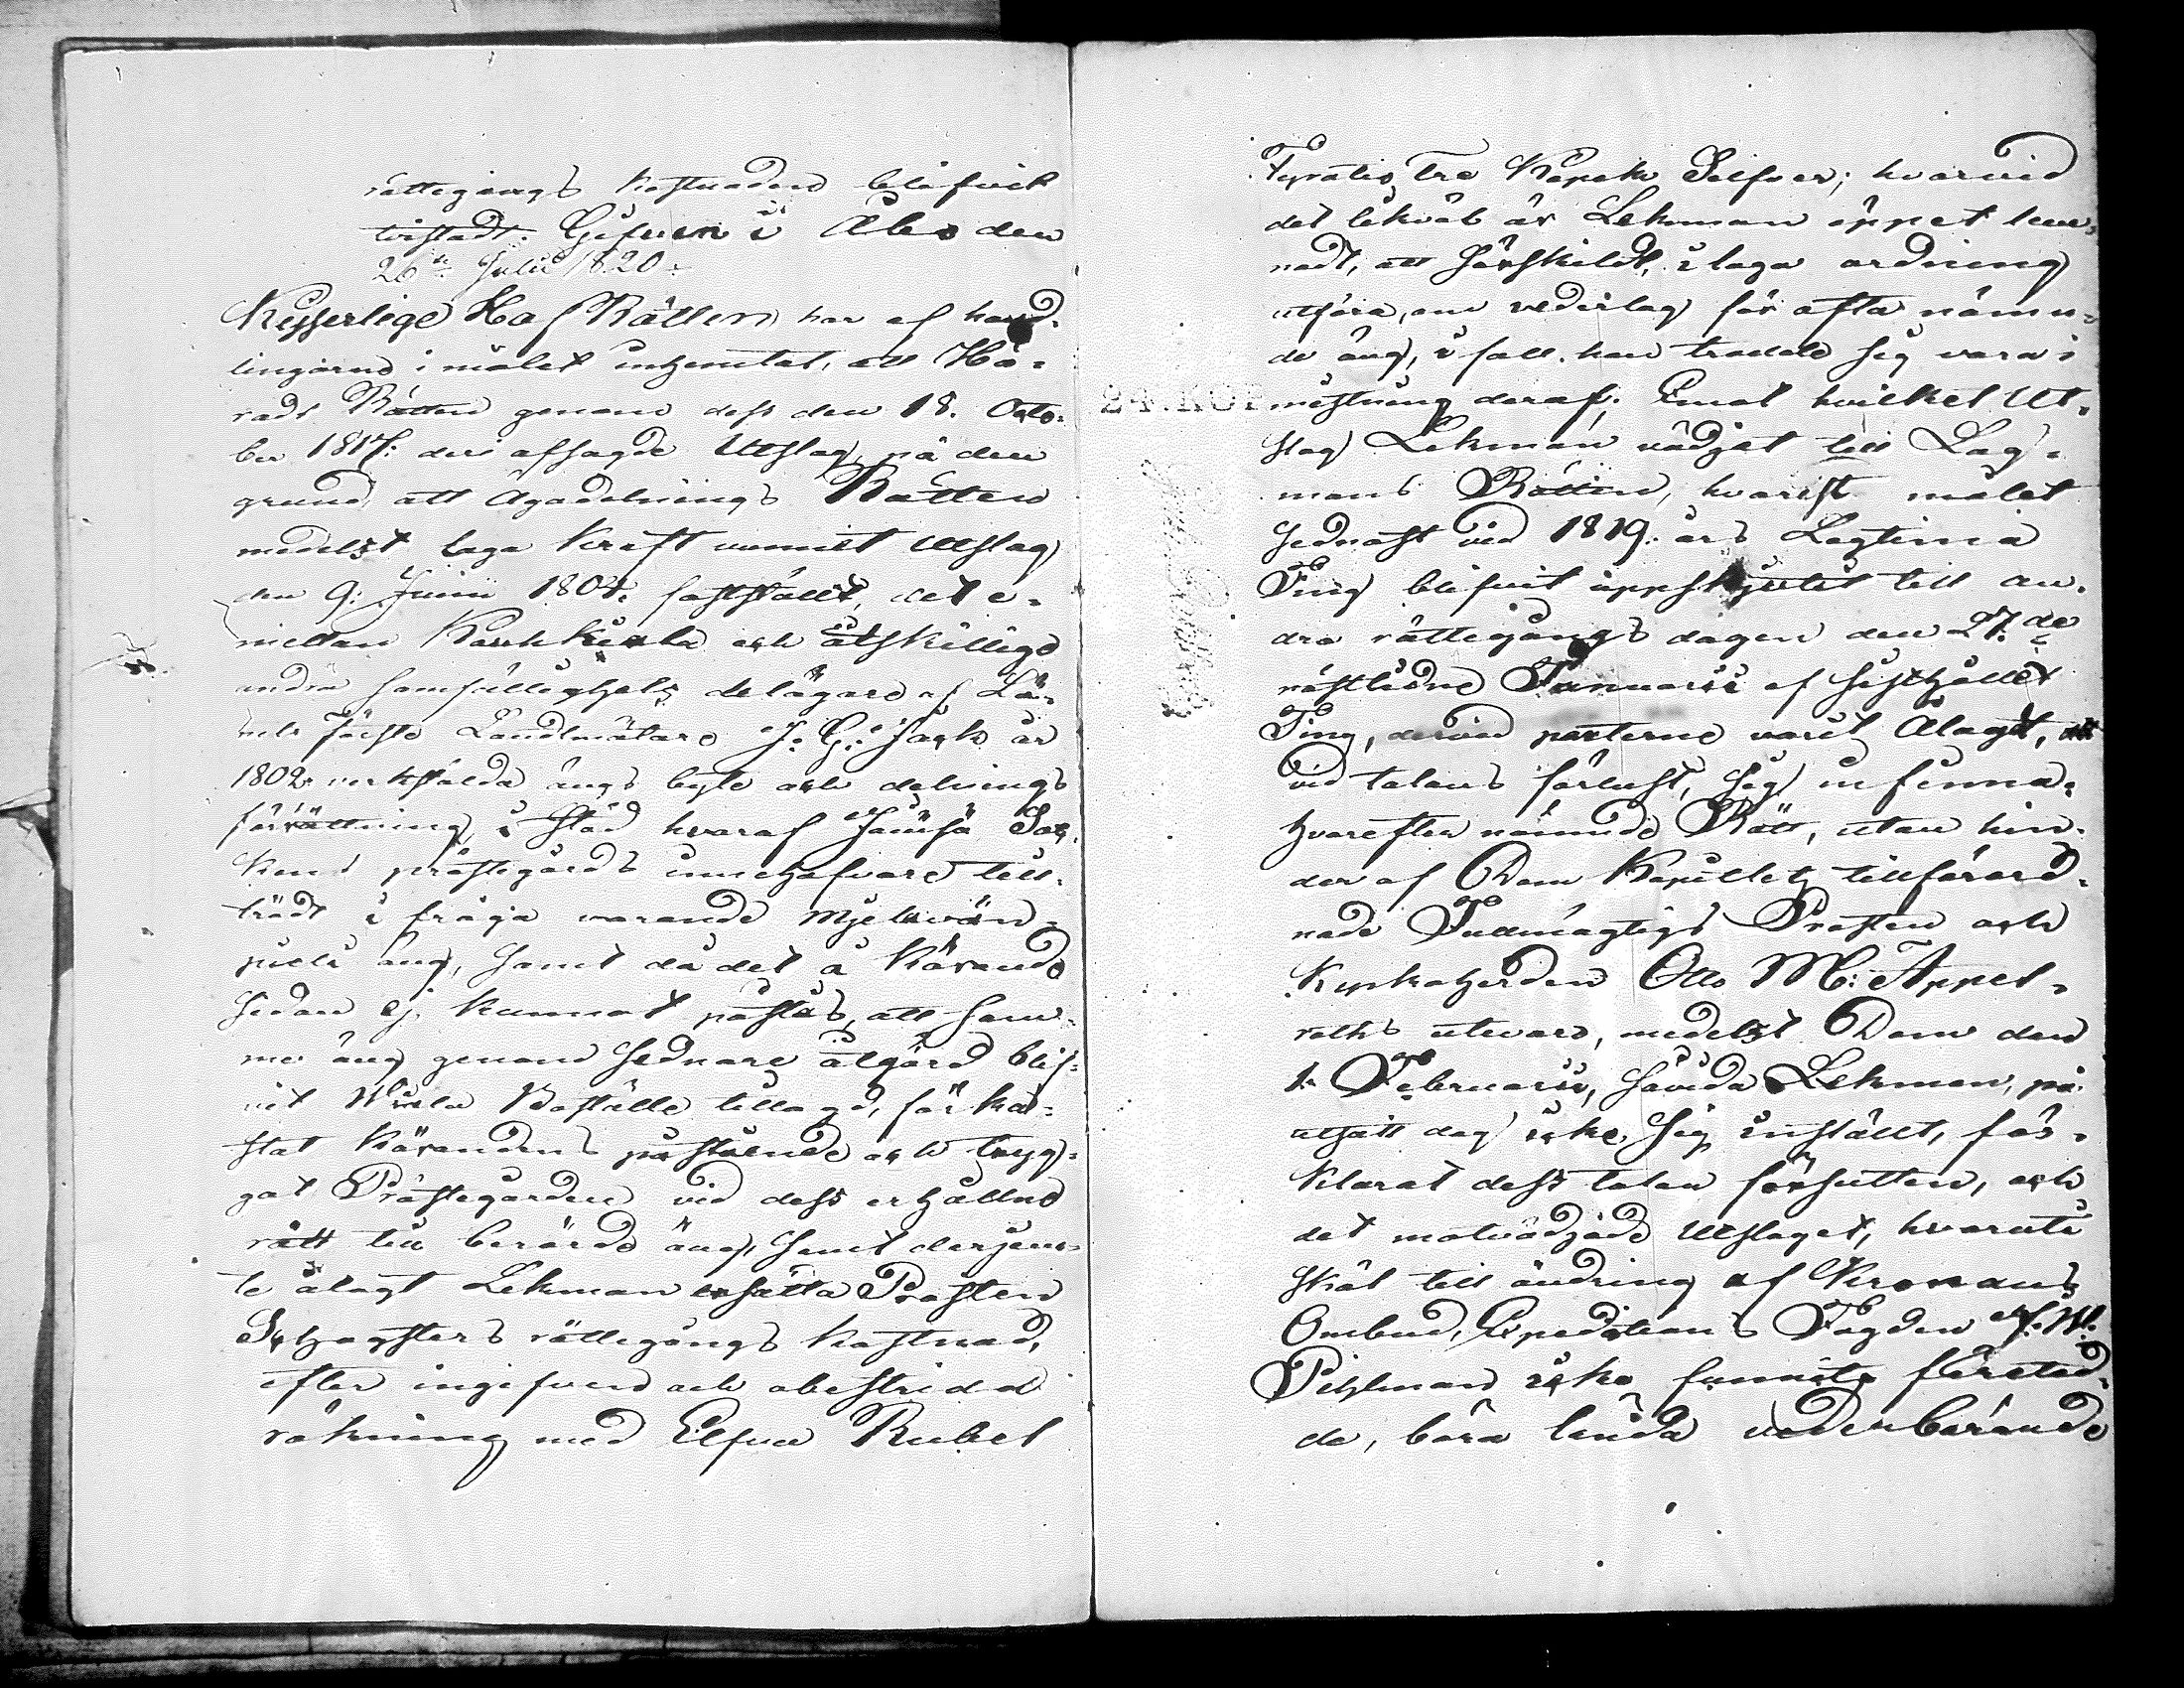 rättegångs kostnaden blifvit
tvistadt. Gifven i Åbo den
26te Julii 1820.
Kejserlige Hof Rätten har af hand-
lingarne i målet inhemtat, att Hä-
rads Rätten genom dess den 18. Octo-
ber 1817. deri afsagde Utslag, på den
grund att Ägodelnings Rätten
medelst laga kraft vunnit Utslag
den 9. Junii 1804. fastställt det e-
mellan Karhkiala och åtskillige
andra samfällighets delägare af Lä-
nets Förste Landtmätare J. G. Jack år
1802. verkstälda ängs byte och delnings
förrättning, i stöd hvaraf Jämsä Soc-
kens prästegårds innehafvare till-
trädt i fråga varande Myllävän-
puoli äng, samt då det å Kärande
sidan ej kunnat påstås, att sam-
me äng genom sednare åtgärd blif-
vit Wuola Boställe tillagd, förka-
stat Kärandens påstående och tryg-
gat Prästegården vid dess erhållne
rätt till berörde äng, samt derjem-
te ålagt Lehman ersätta Prosten
Schogsters rättegångs kostnad,
efter ingifven och obestridd
räkning med Elfva Rubel
Fyratio Tre Kopek Silfver; hvarvid
det likväl är Lehman öppet lem-
nadt, att särskildt, i laga ordning
utföra, om vederlag för ofta nämn-
de äng, i fall han trodde sig vara i
mistning deraf; Emot hvilket Ut-
slag Lehman vädjat till Lag-
mans Rätten, hvarest målet
sednast vid 1819. års Lagtima
Ting blifvit uppskjutit till an-
dra rättegångs dagen den 27de
nästledne Januarii af sisthållet
Ting, dervid parterne varit ålagt, att
vid talans förlust, sig infinna;
hvarefter nämnde Rätt, utan hin-
der af Dom Kapitlets tillförord-
nade Fullmägtigs Prosten och
Kyrkoherden Otto M. Appel-
roths utevaro, medelst Dom den
1. Februarii, såvida Lehman, på
utsatt dag icke sig inställt, för-
klarat dess talan försutten, och
det motvädjade Utslaget, hvaruti
skäl till ändring af Kronans
Ombud, Expeditions Fogden A. W.
Pihlman icke funnits företed-
de, böra lända vederbörande
24. KOP